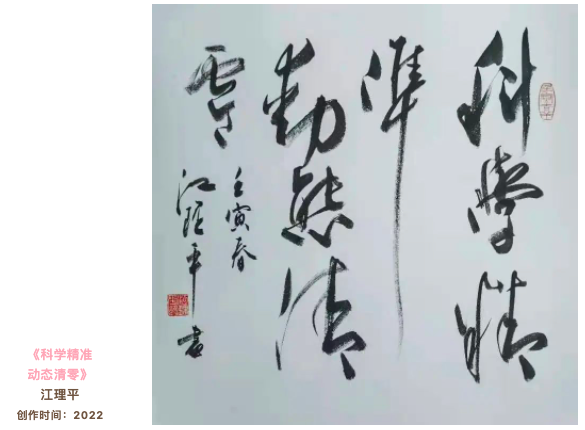 科學精
準
動態清
零
壬寅春
江理平書
《科学精准
动态清零》
江理平
创作时间：2022